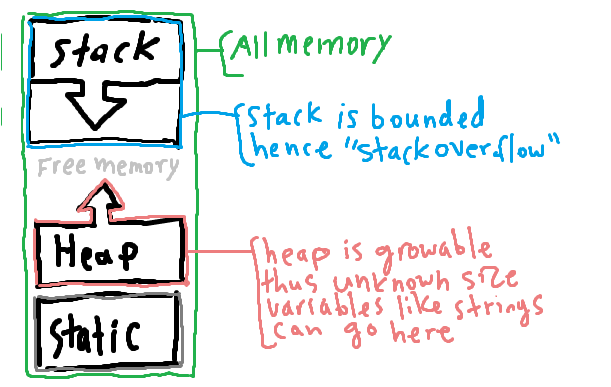 stack
All memory
stack is bounded
hence "stackoverflow"
Free memory
Heap
heap is growable
thus unknown size
variables like strings
can go here
static